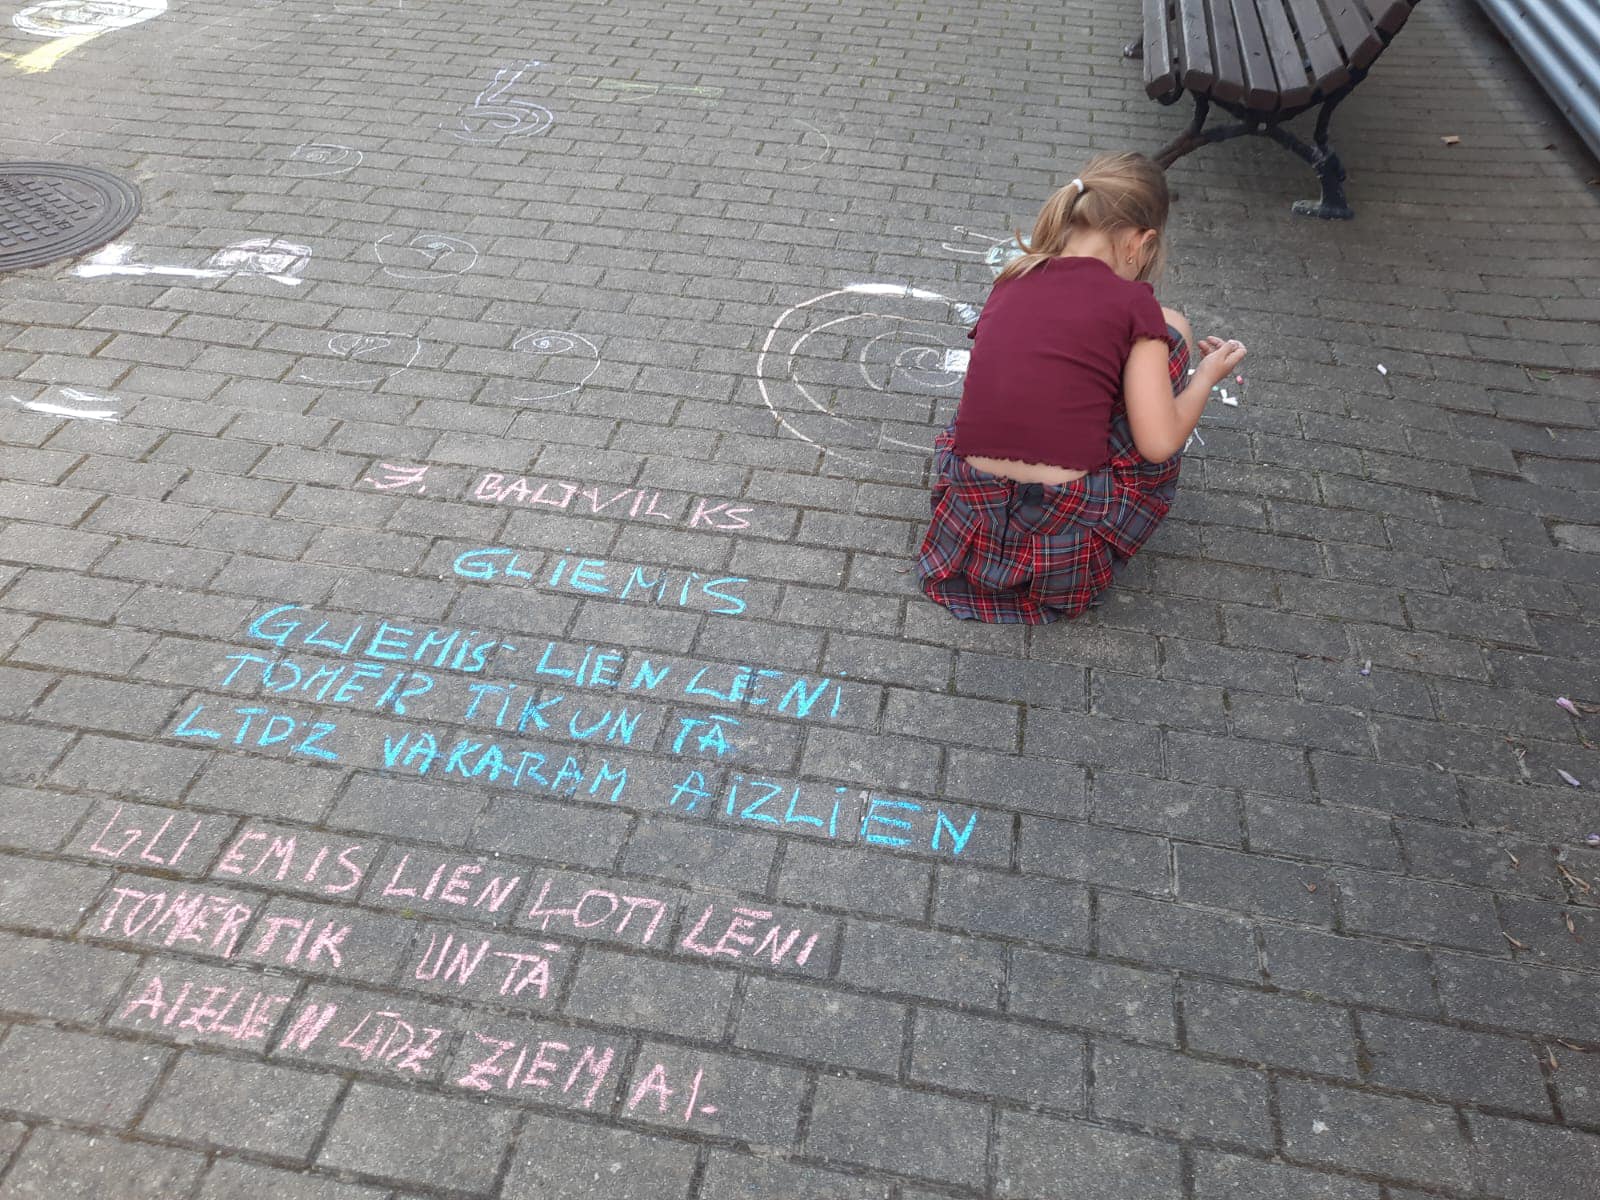 J. BALTVILKS
GLIEMIS
GLIEMIS LIEN LĒNI
TOMĒR TIK UN TĀ
LĪDZ VAKARAM AIZLIEN
GLIEMIS LIEN ĻOTI LĒNI
TOMĒR TIK UN TĀ
AIZLIEN LĪDZ ZIEMAI.